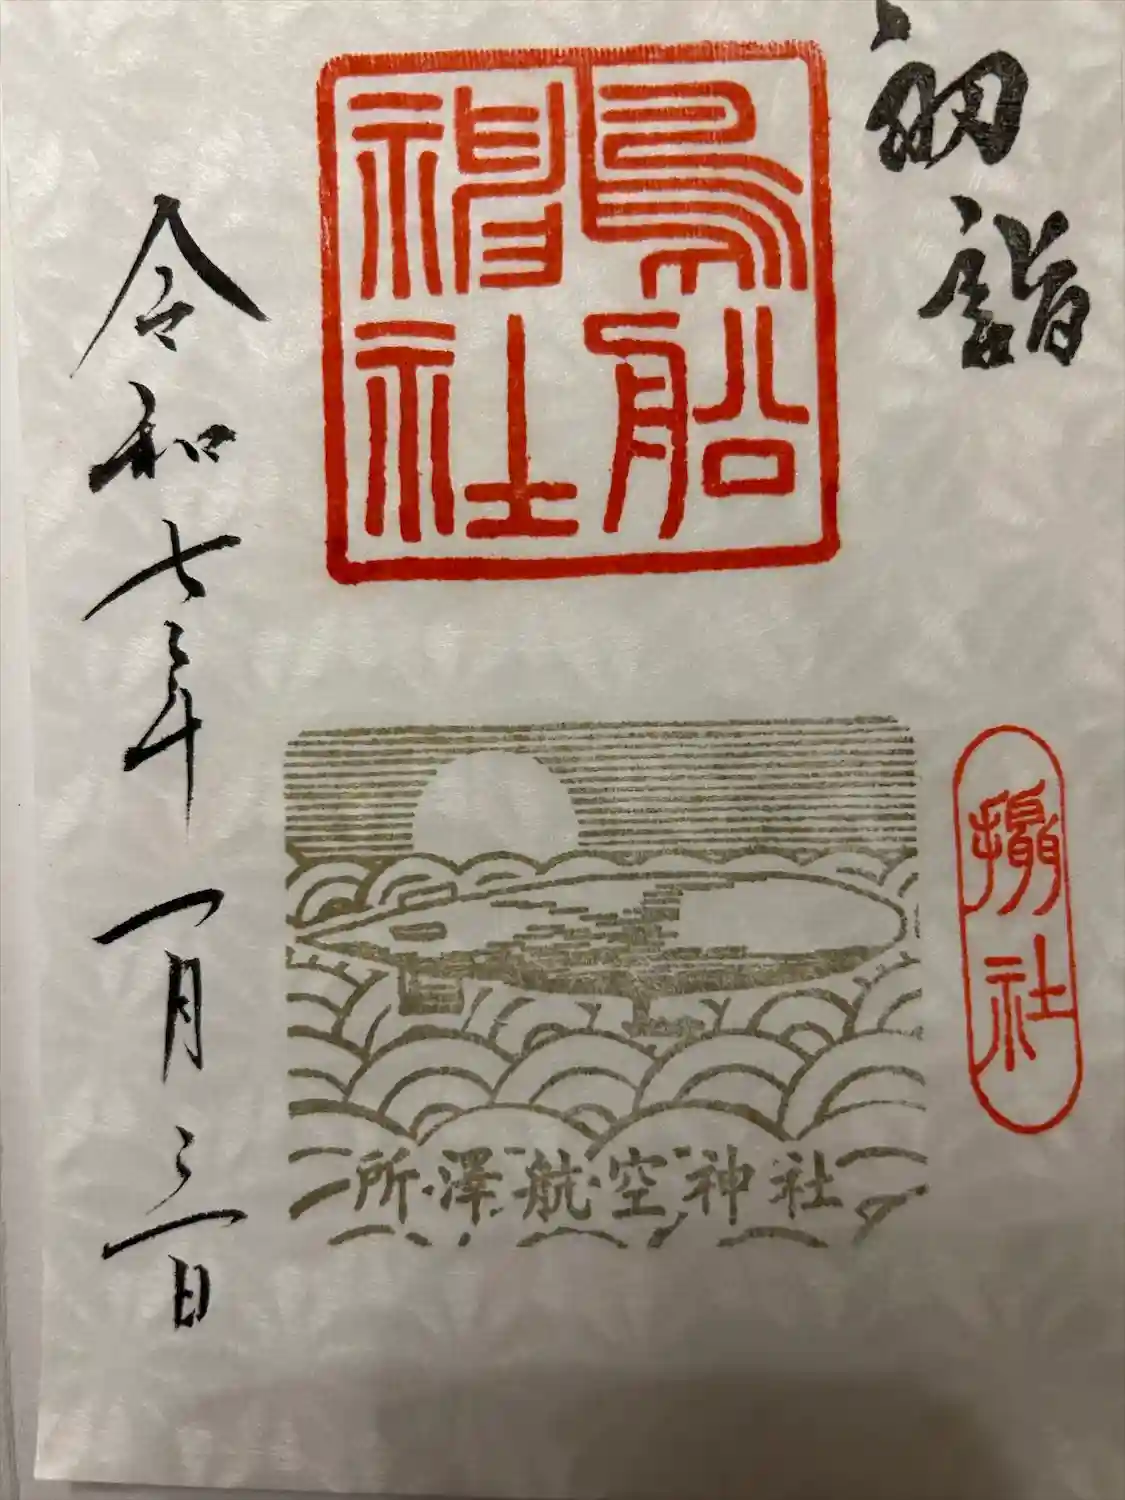 初詣
鳥船
神社
摂社
所澤航空神社
令和七年一月三日